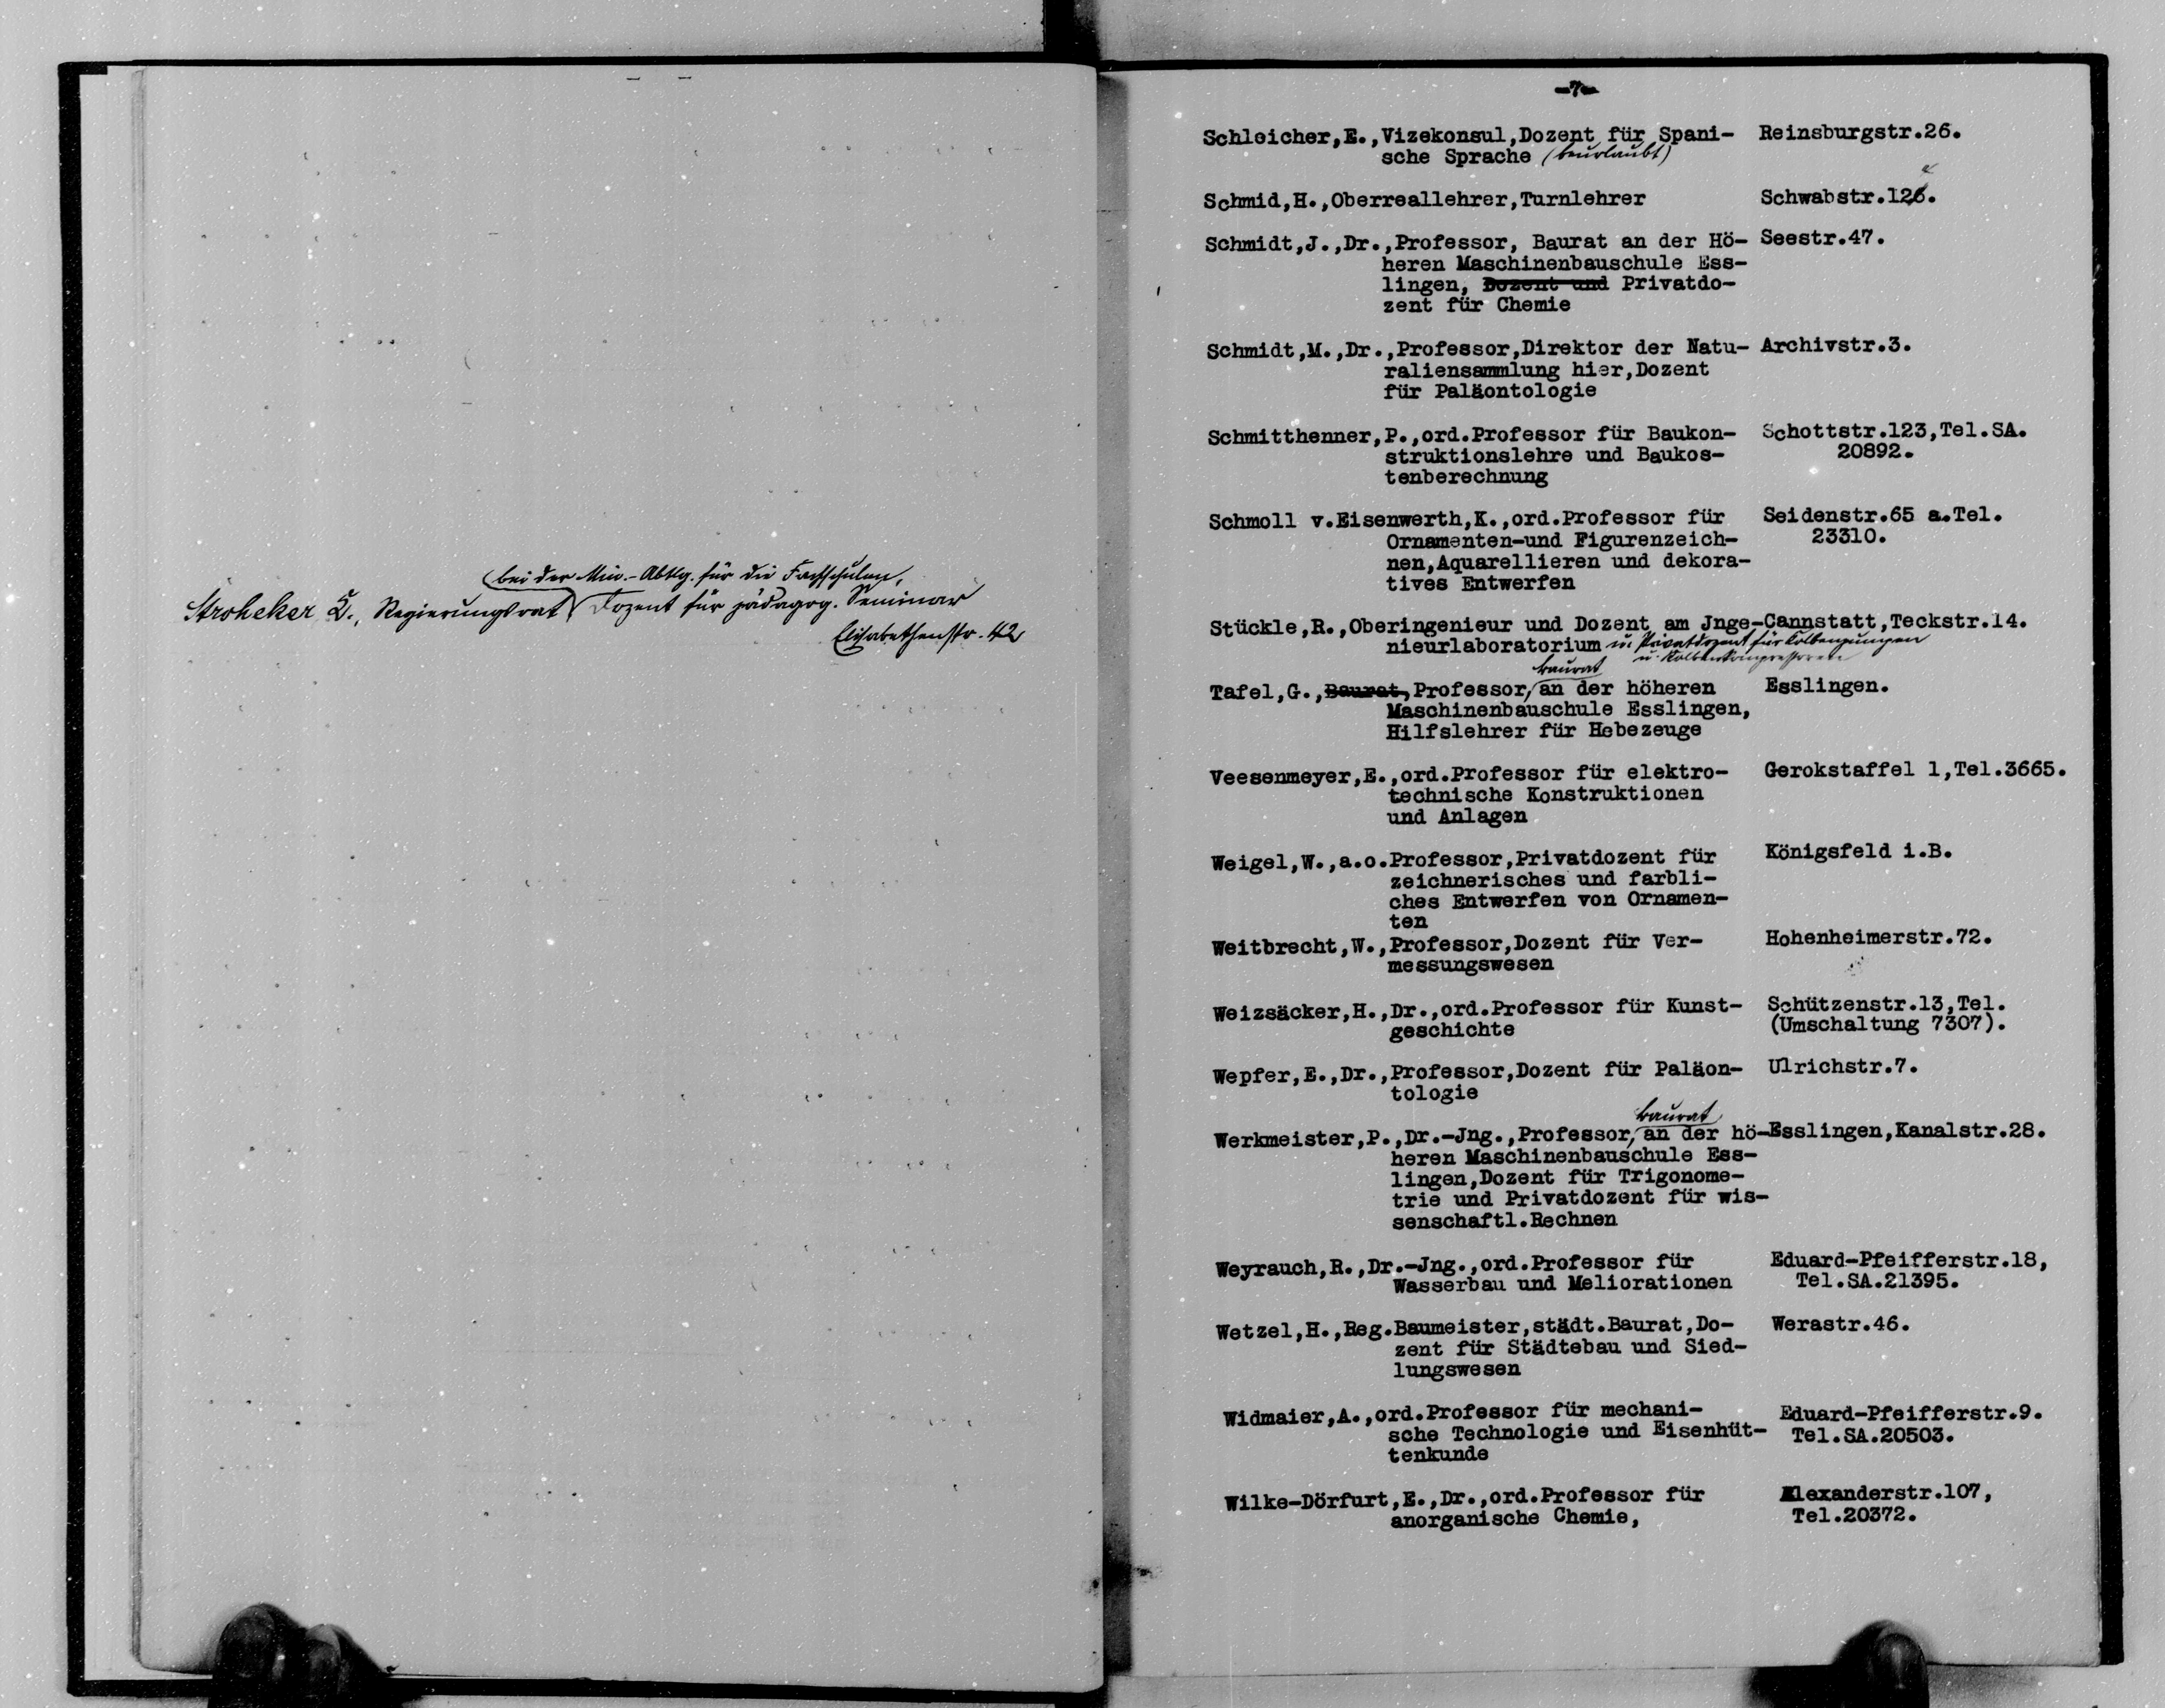 bei der Min.-Abtlg. für die Fachschulen,
Stroheker K., Regierungsrat Dozent für pädagog. Seminar
Elisabethenstr. 42
-7-
Schleicher,E.,Vizekonsul,Dozent für Spani- Reinsburgstr.26.
sche Sprache (beurlaubt)
Schmid,H.,Oberreallehrer,Turnlehrer Schwabstr.126.
Schmidt,J.,Dr.,Professor, Baurat an der Hö- Seestr.47.
heren Maschinenbauschule Ess-
lingen, Dozent und Privatdo-
zent für Chemie
Schmidt,M.,Dr.,Professor,Direktor der Natu- Archivstr.3.
raliensammlung hier,Dozent
für Paläontologie
Schmitthenner,P.,ord.Professor für Baukon- Schottstr.123,Tel.SA.
struktionslehre und Baukos- 20892.
tenberechnung
Schmoll v.Eisenwerth,K.,ord.Professor für Seidenstr.65 a.Tel.
Ornamenten-und Figurenzeich- 23310.
nen,Aquarellieren und dekora-
tives Entwerfen
Stückle,R.,Oberingenieur und Dozent am Jnge-Cannstatt,Teckstr.14.
nieurlaboratorium u. Privatdozent für Kolbenpumpen
u. Kolbenkompressoren
Baurat
Tafel,G.,Baurat,Professor,an der höheren Esslingen.
Maschinenbauschule Esslingen,
Hilfslehrer für Hebezeuge
Veesenmeyer,E.,ord.Professor für elektro- Gerokstaffel 1,Tel.3665.
technische Konstruktionen
und Anlagen
Weigel,W.,a.o.Professor,Privatdozent für Königsfeld i.B.
zeichnerisches und farbli-
ches Entwerfen von Ornamen-
ten
Weitbrecht,W.,Professor,Dozent für Ver- Hohenheimerstr.72.
messungswesen
Weizsäcker,H.,Dr.,ord.Professor für Kunst- Schützenstr.13,Tel.
geschichte (Umschaltung 7307).
Wepfer,E.,Dr.,Professor,Dozent für Paläon- Ulrichstr.7.
tologie
Baurat
Werkmeister,P.,Dr.-Jng.,Professor,an der hö-Esslingen,Kanalstr.28.
heren Maschinenbauschule Ess-
lingen,Dozent für Trigonome-
trie und Privatdozent für wis-
senschaftl.Rechnen
Weyrauch,R.,Dr.-Jng.,ord.Professor für Eduard-Pfeifferstr.18,
Wasserbau und Meliorationen Tel.SA.21395.
Wetzel,H.,Reg.Baumeister,städt.Baurat,Do- Werastr.46.
zent für Städtebau und Sied-
lungswesen
Widmaier,A.,ord.Professor für mechani- Eduard-Pfeifferstr.9.
sche Technologie und Eisenhüt- Tel.SA.20503.
tenkunde
Wilke-Dörfurt,E.,Dr.,ord.Professor für Alexanderstr.107,
anorganische Chemie, Tel.20372.